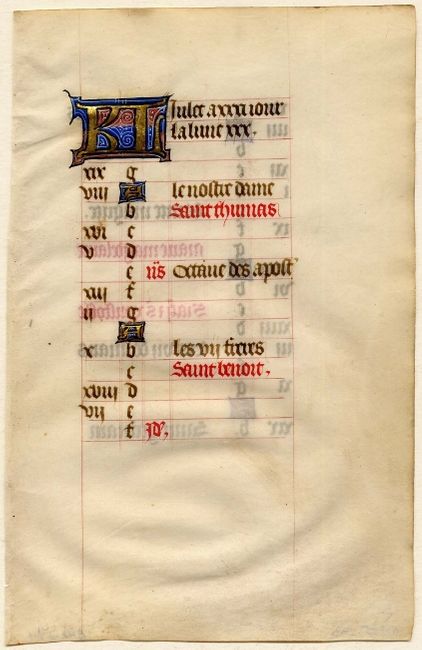 KL Iulet a xxxi iour
La lune xxx.
xix g
viii A le nostre dame
b Saint thumas
xvi c
v d
e ns Octaue des apost'
xiii f
ii g
A
x b Les vii freres
c Saint benoit.
xviii d
vii e
f Jd'.